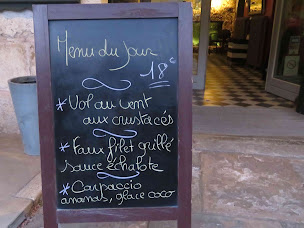 Menu du jour
18€
* Vol au vent
aux crustacés
* Faux filet grillé
sauce échalote
* Carpaccio
ananas, glace coco